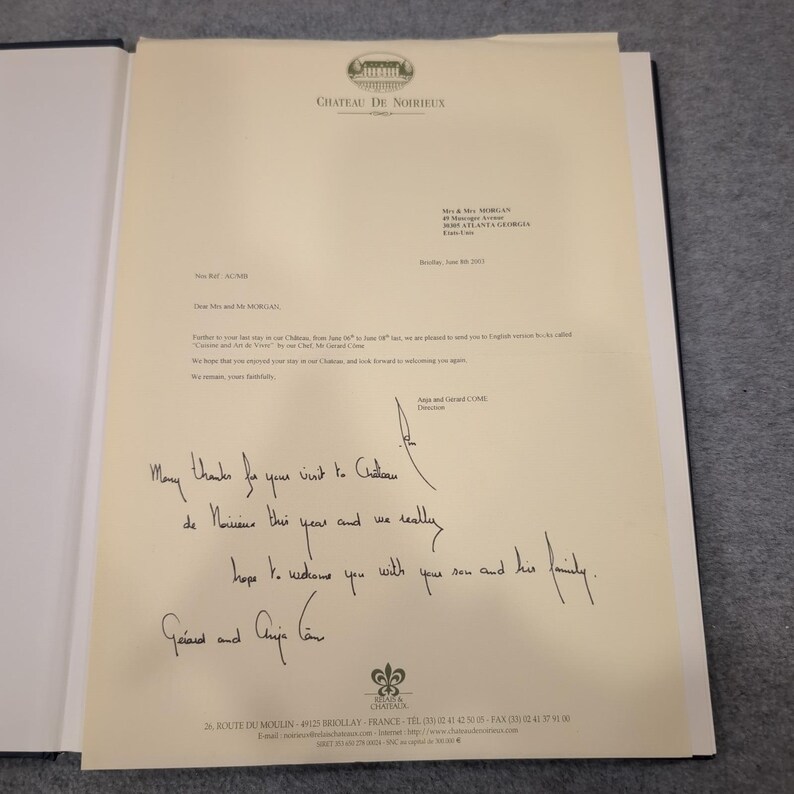 CHATEAU DE NOIRIEUX
Mrs & Mrs MORGAN
49 Muscogee Avenue
30305 ATLANTA GEORGIA
Etats-Unis
Briollay, June 8th 2003
Nos Réf : AC/MB
Dear Mrs and Mr MORGAN,
Further to your last stay in our Château, from June 06th to June 08th last, we are pleased to send you to English version books called
"Cuisine and Art de Vivre" by our Chef, Mr Gerard Côme
We hope that you enjoyed your stay in our Chateau, and look forward to welcoming you again,
We remain, yours faithfully,
Anja and Gérard COME
Direction
Many thanks for your visit to Château
de Noirieux this year and we really
hope to welcome you with your son and his family.
Gérard and Anja Côme
RELAIS &
CHATEAUX
26, ROUTE DU MOULIN - 49125 BRIOLLAY - FRANCE - TÉL (33) 02 41 42 50 05 - FAX (33) 02 41 37 91 00
E-mail : noirieux@relaischateaux.com - Internet : http://www.chateaudenoirieux.com
SIRET 353 650 278 00024 - SNC au capital de 300.000 €